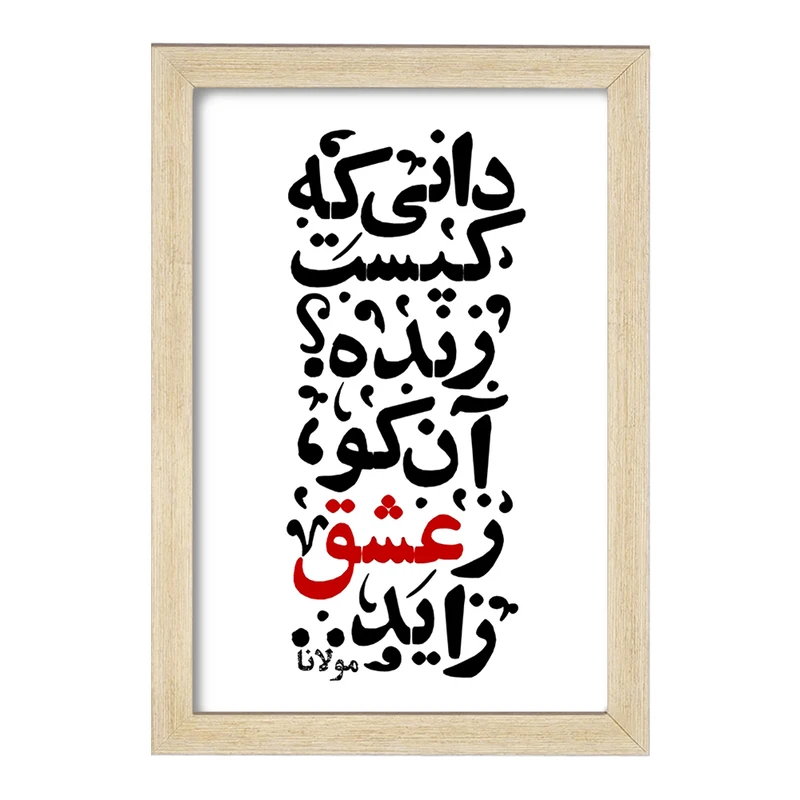 دانی که
کیست
زنده؟
آن کو،
ز عشق
زاید..
مولانا